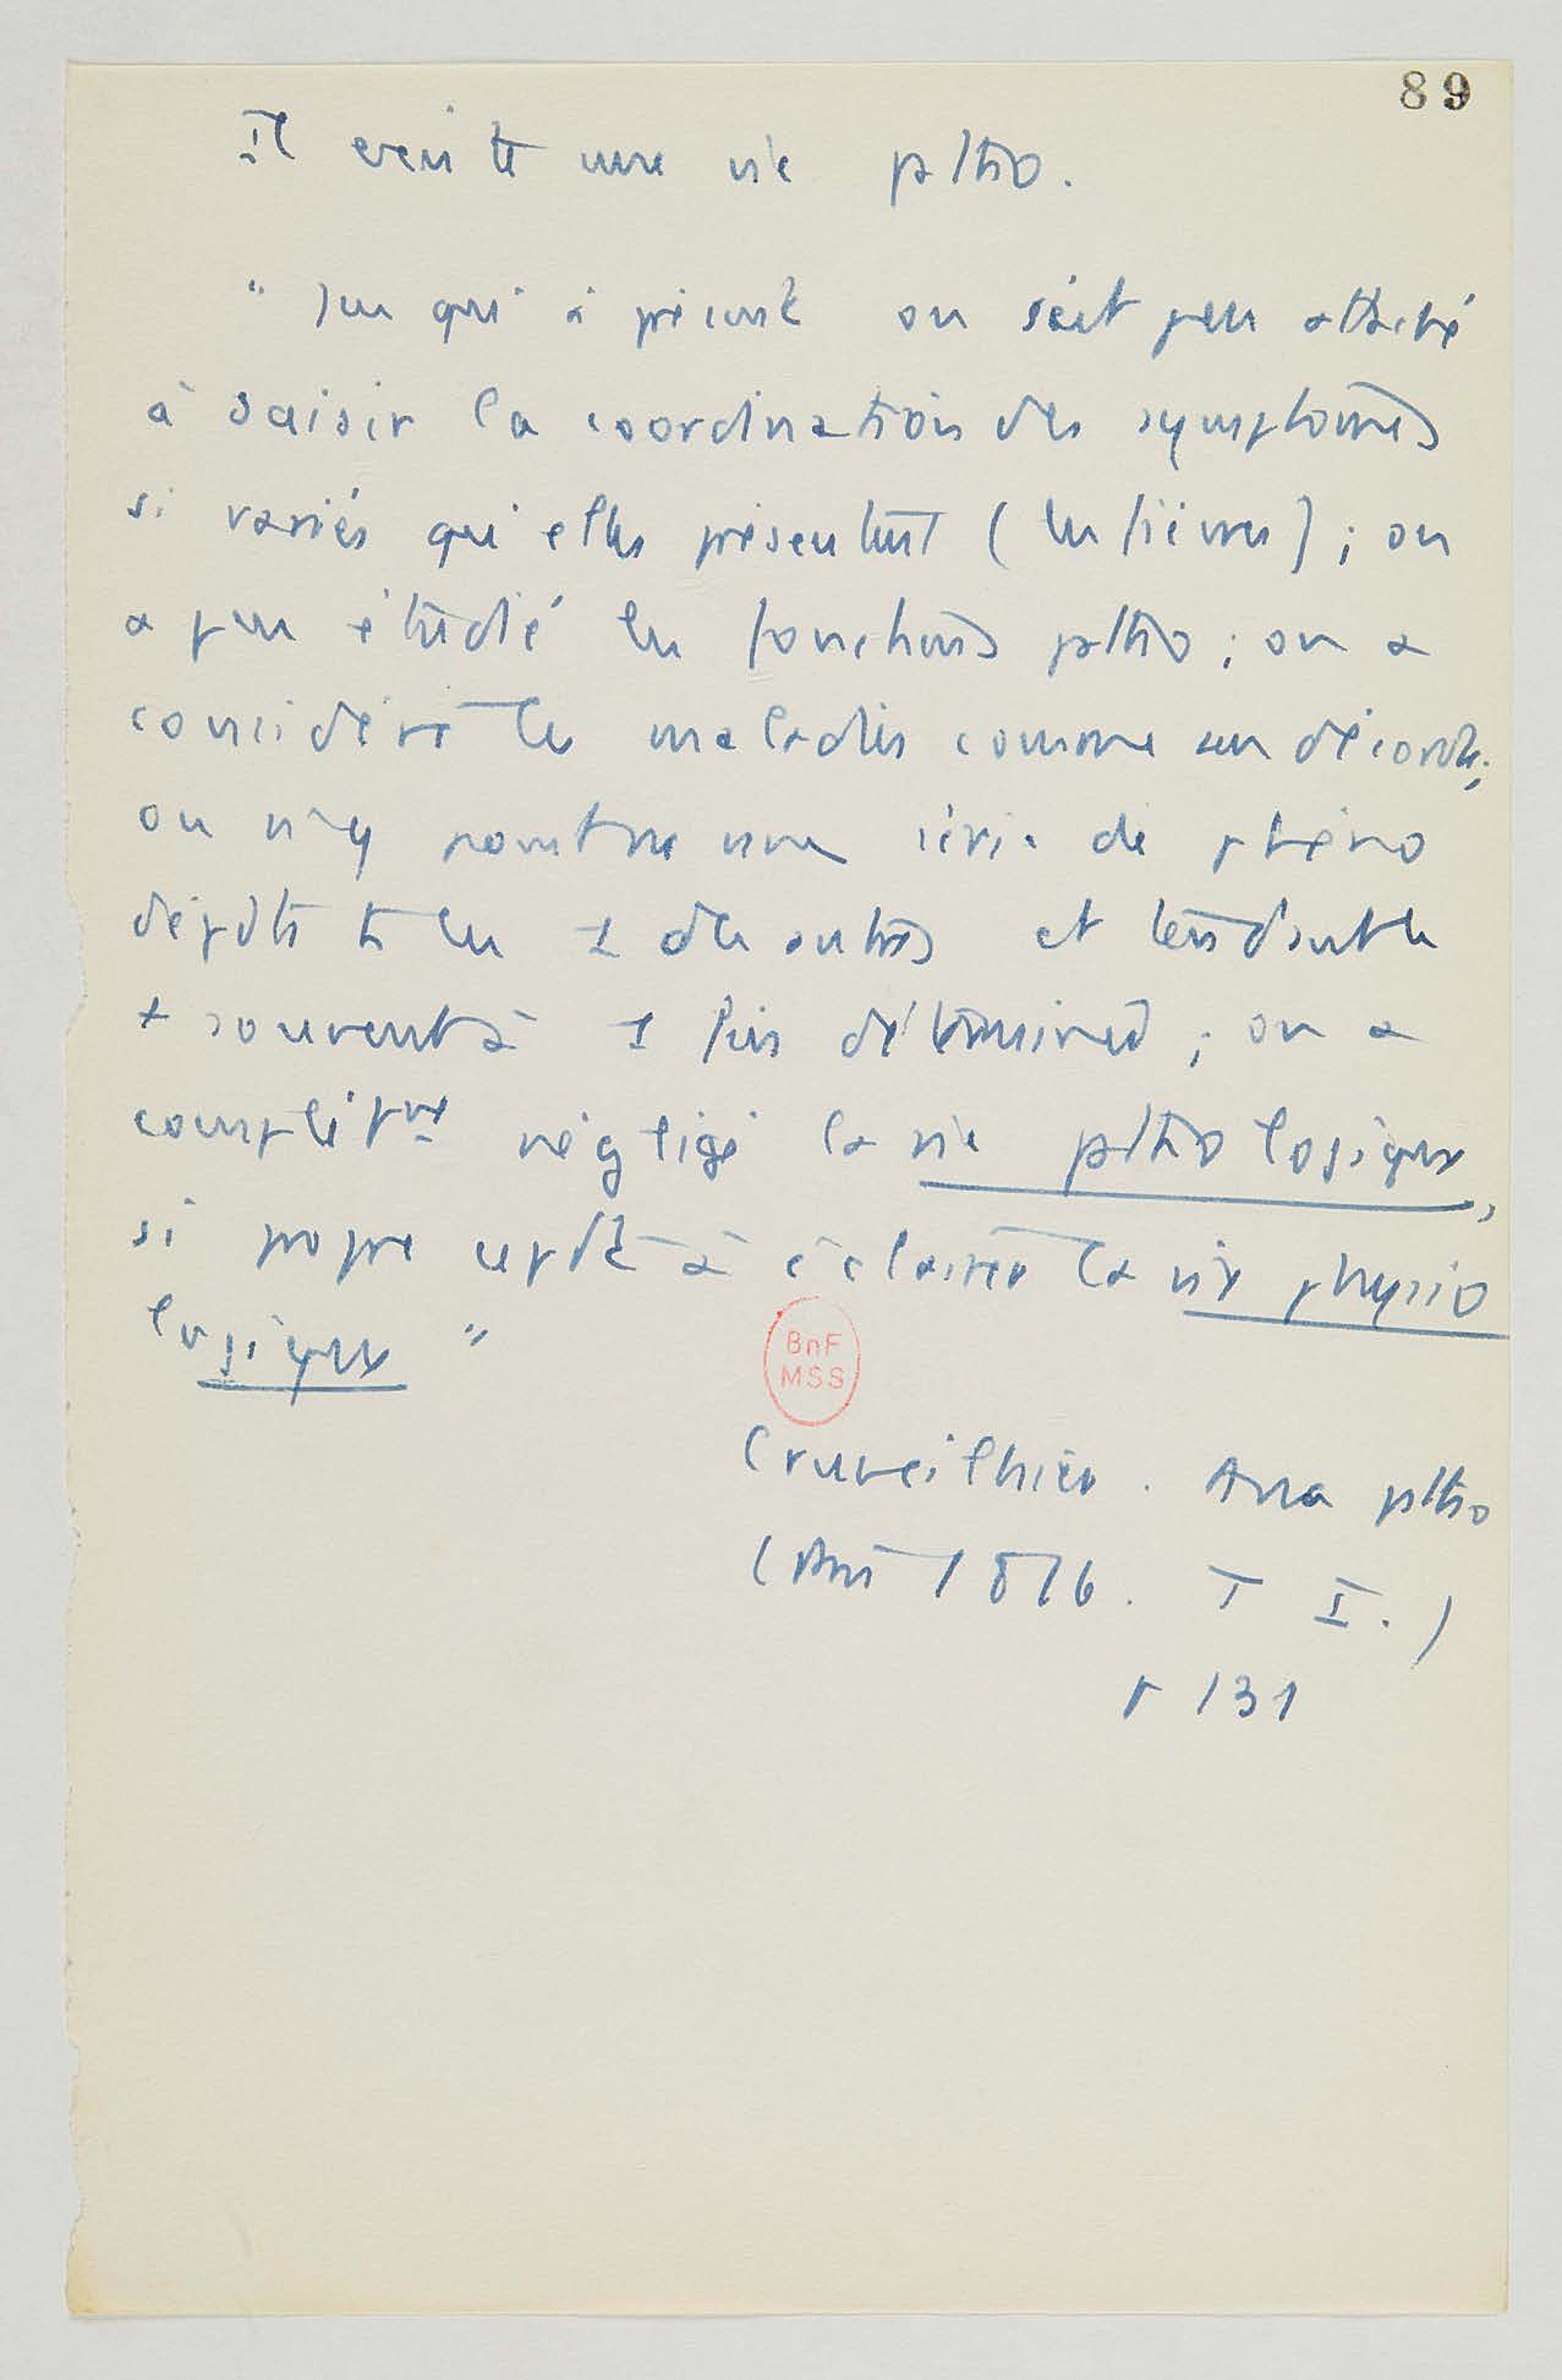 89
Il existe une vie patho.
" Jusqu'à présent on s'est peu attaché
à saisir la coordination des symptômes
si variés qu'elles présentent (les fièvres) ; on
a peu étudié les fonctions patho ; on a
considéré les maladies comme un désordre ;
on n'y point vu une série de phéno
dépdts ts les 1 des autres et tendant le
+ souvent à 1 fin déterminée ; on a
complètmt négligé la vie pathologique,
si propre cepdt à éclairer la vie physio
logique "
BnF
MSS
Cruveilhier. Ana patho
(Paris 1816. T I.)
p 131